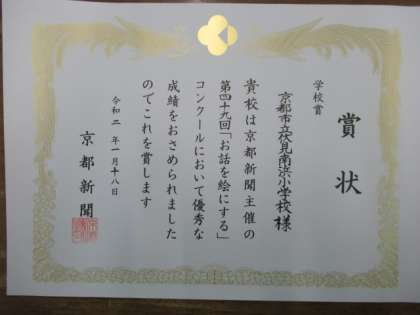 賞状
学校賞
京都市立伏見南浜小学校様
貴校は京都新聞主催の
第四十九回「お話を絵にする」
コンクールにおいて優秀な
成績をおさめられました
のでこれを賞します
令和二年一月十八日
京都新聞